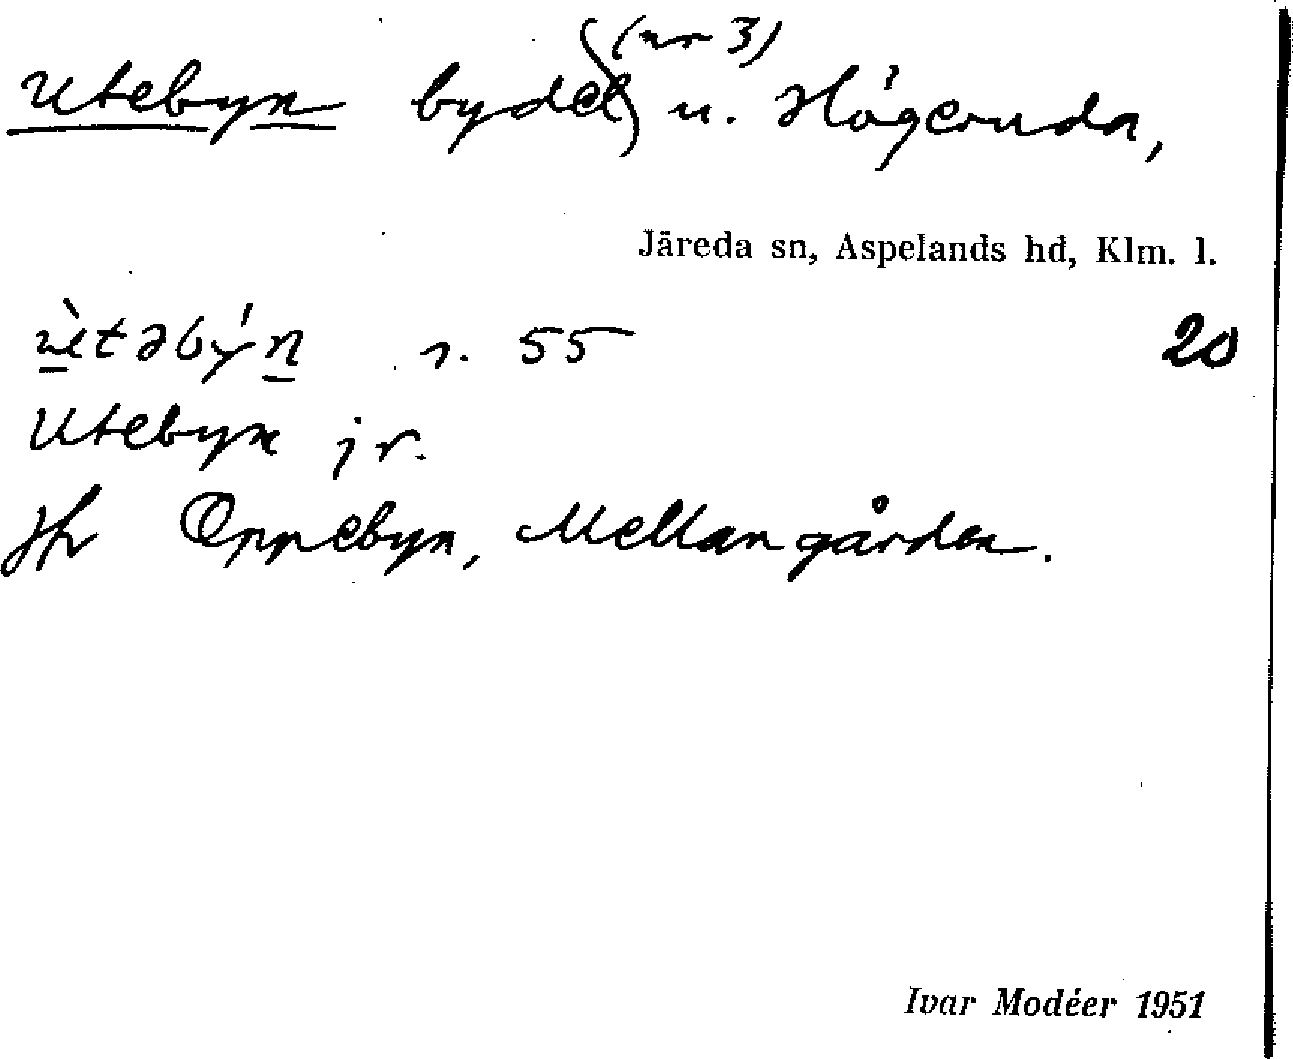 Utebyn bydel (nr 3) u. Högeruda,
Järeda sn, Aspelands hd, Klm. l.
ùtəby´n s. 55 20
Utebyn jr.
Jfr Oppebyn, Mellangården.
Ivar Modéer 1951